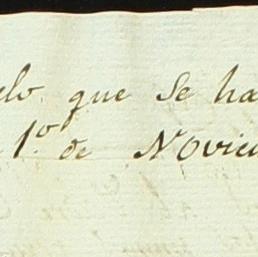 elo que se ha
1.º de Novie